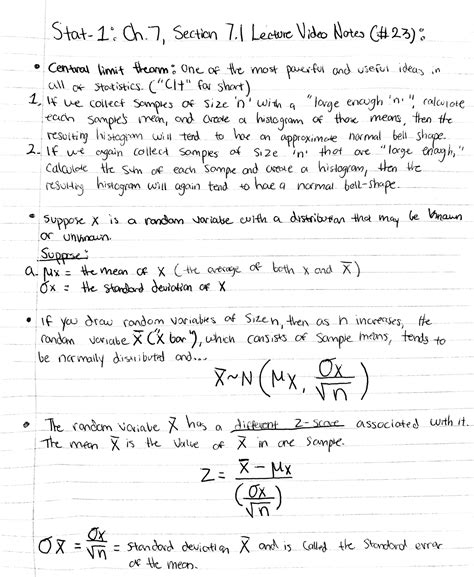 Stat-1: Ch.7, Section 7.1 Lecture Video Notes (#23):
• Central limit theorm: One of the most powerful and useful ideas in
all of statistics. ("Clt" for short)
1. If we collect samples of size 'n' with a "large enough 'n'", calculate
each sample's mean, and create a histogram of those means, then the
resulting histogram will tend to have an approximate normal bell shape.
2. If we again collect samples of size 'n' that are "large enough,"
calculate the sum of each sample and create a histogram, then the
resulting histogram will again tend to have a normal bell-shape.
• Suppose X is a random variable with a distribution that may be known
or unknown.
Suppose:
a. μx = the mean of X (the average of both X and X̅)
σx = the standard deviation of X
• If you draw random variables of size n, then as n increases, the
random variable X̅ ("X bar"), which consists of sample means, tends to
be normally distributed and...
X̅~N(μx, σx/√n)
• The random variable X̅ has a different z-score associated with it.
The mean X̅ is the value of X̅ in one sample.
Z = (X̅ - μx)/(σx/√n)
σX̅ = σx/√n = standard deviation X̅ and is called the standard error
of the mean.